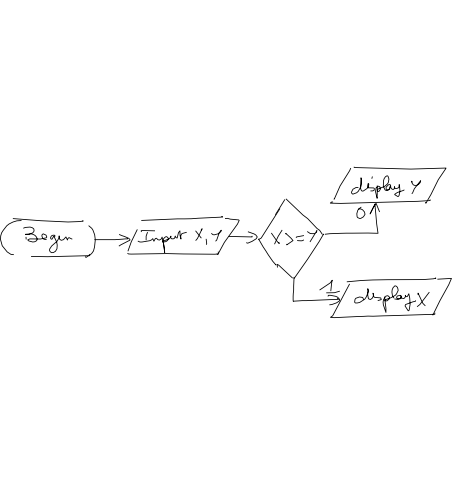 Begin
Input X, Y
X >= Y
display Y
0
1
display X